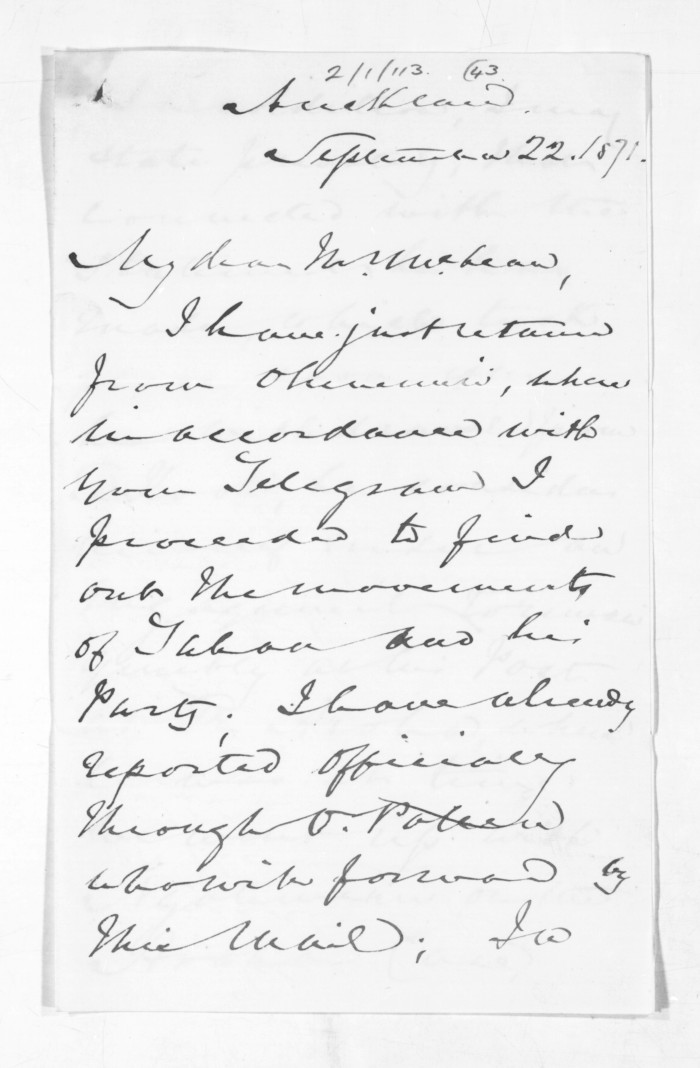 2/1/113. 43
Auckland.
September 22. 1871.
My dear Mr. McLean,
I have just return
from Ohinemuri, where
in accordance with
your Telegram I
proceeded to find
out the movements
of and his
Party. I have already
reported officially
through D. Pollen
who will forward by
this Mail; In